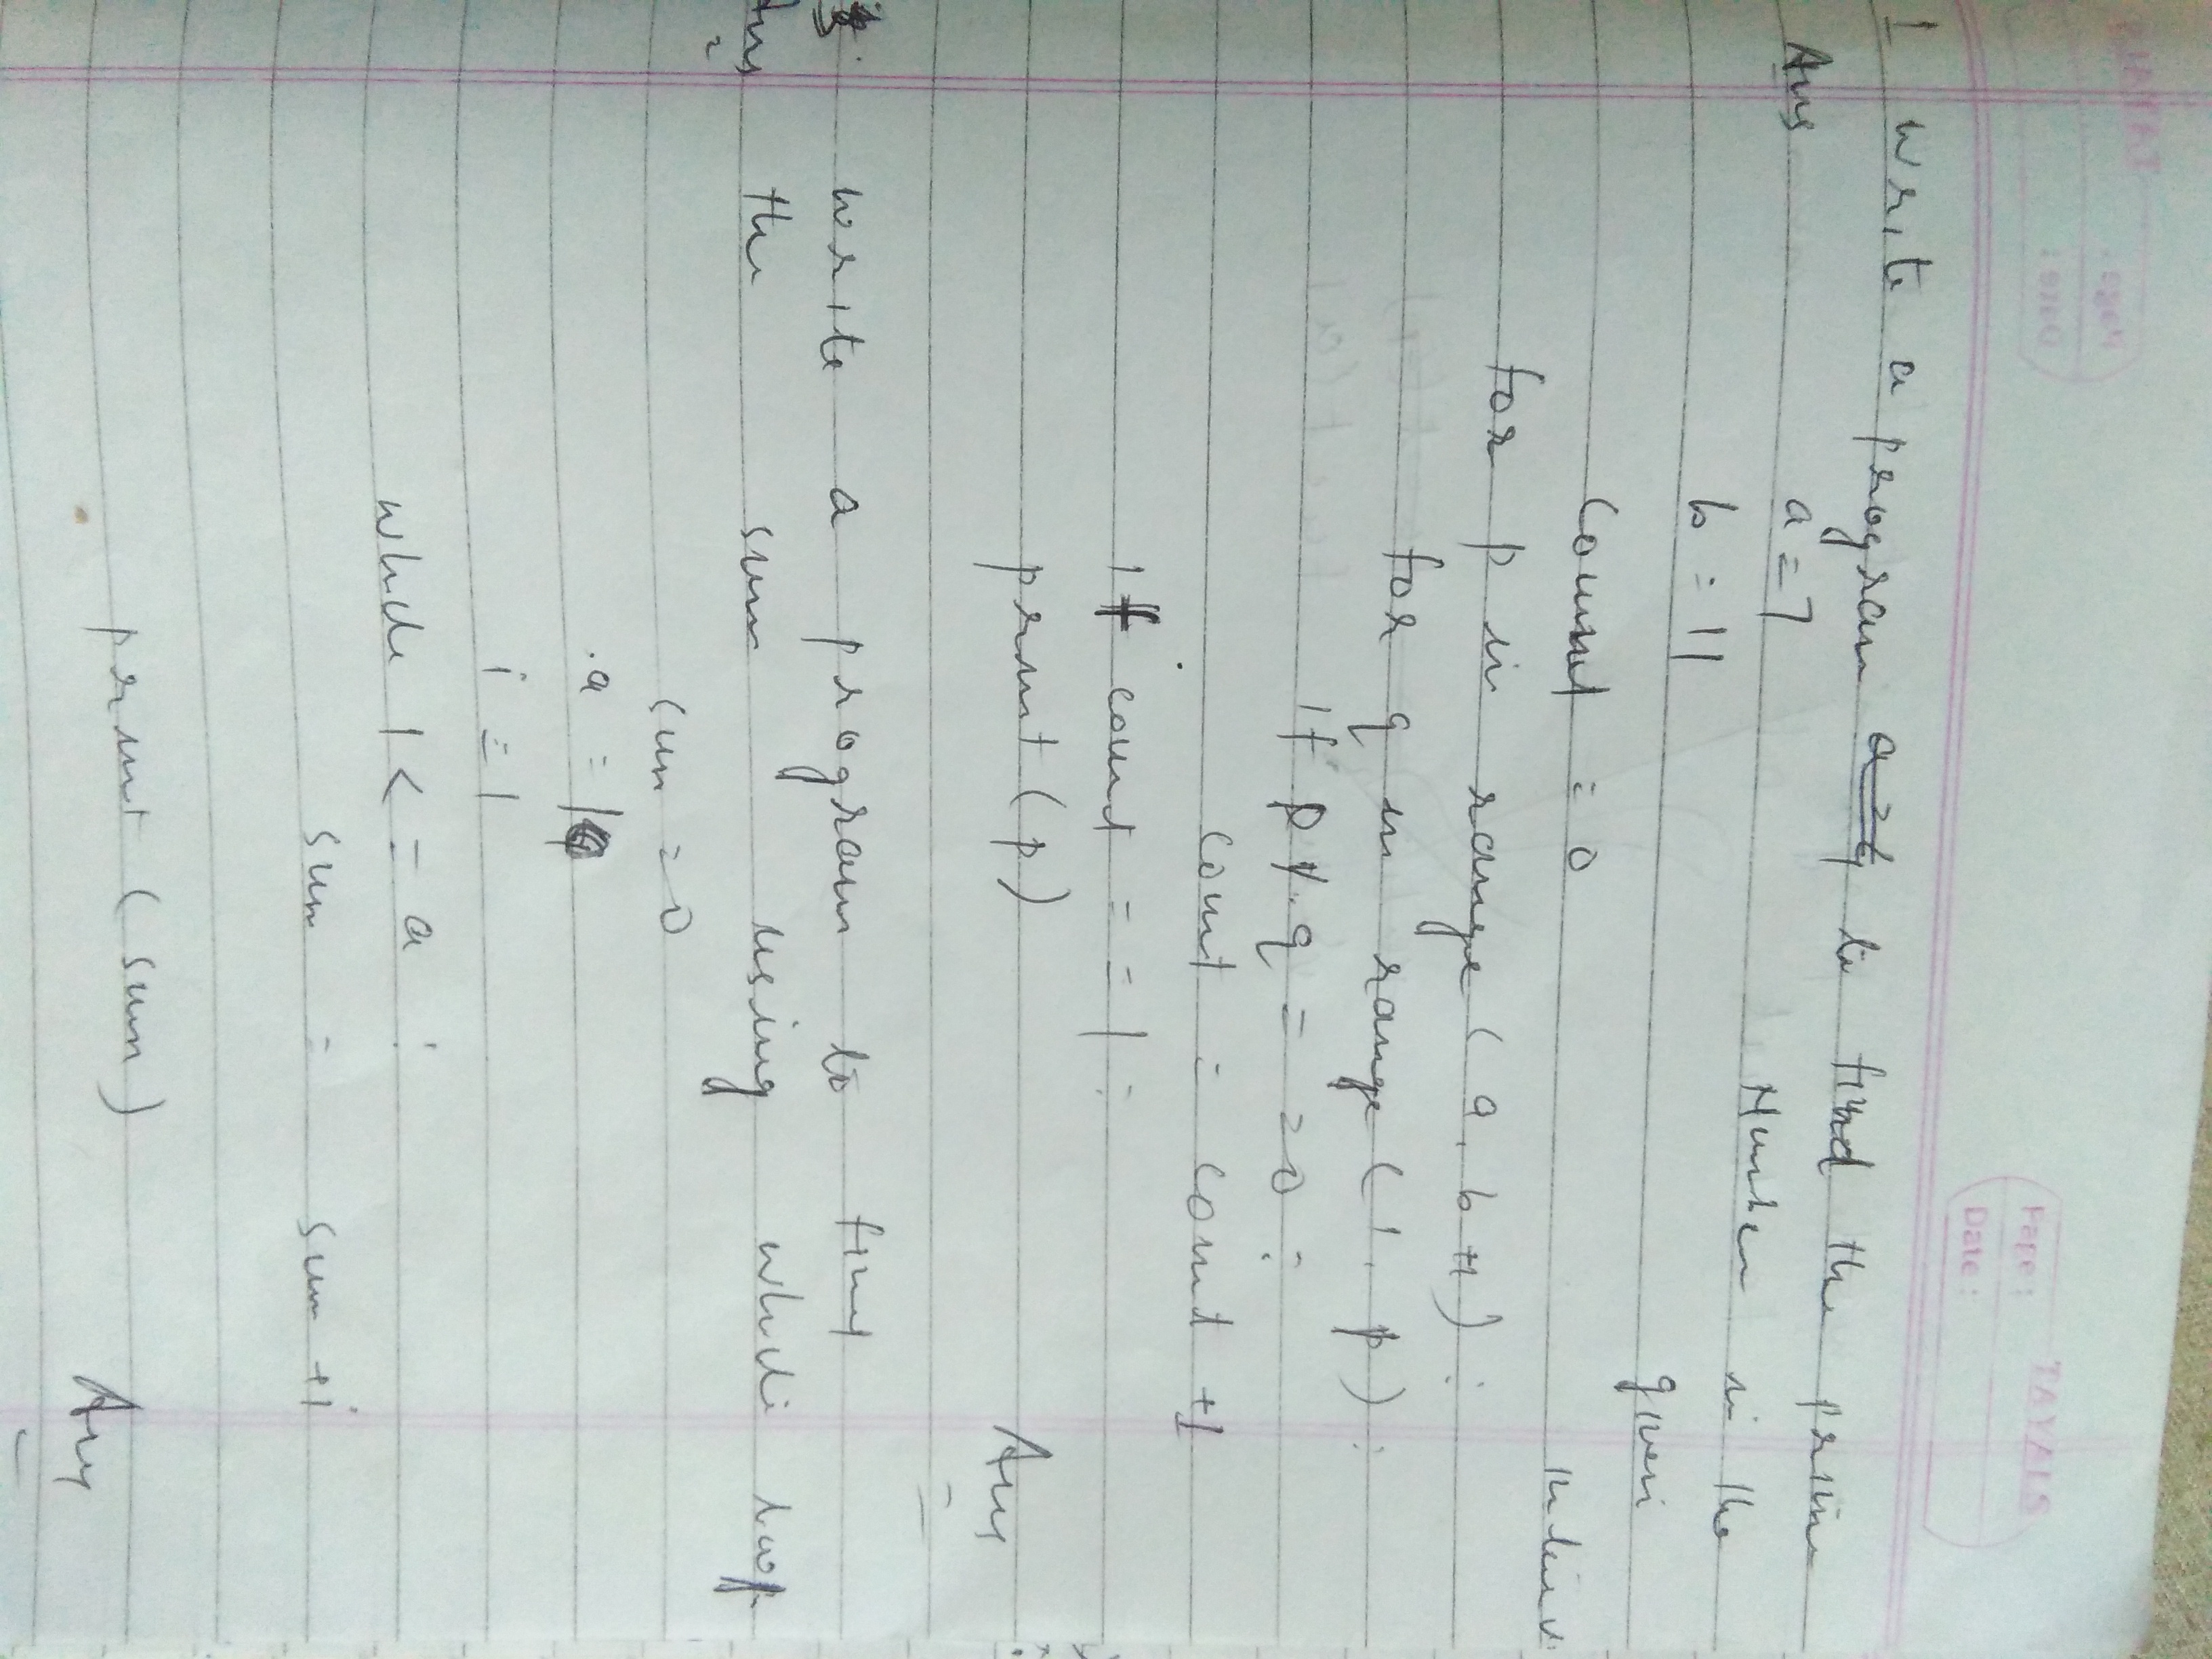 TAYALS
Page :
Date :
1 write a program to find the prime
Ans a = 7 Number in the
b = 11 given
Count = 0
for p in range ( a, b +1 ) :
for q in range ( 1, p ) :
if p % q = = 0 :
count = count +1
if count = = 1 :
print ( p )
Ans
write a program to find
Ans the sum using while loop
sum = 0
a =
i = 1
while i < = a :
sum = sum + i
print ( sum )
Ans